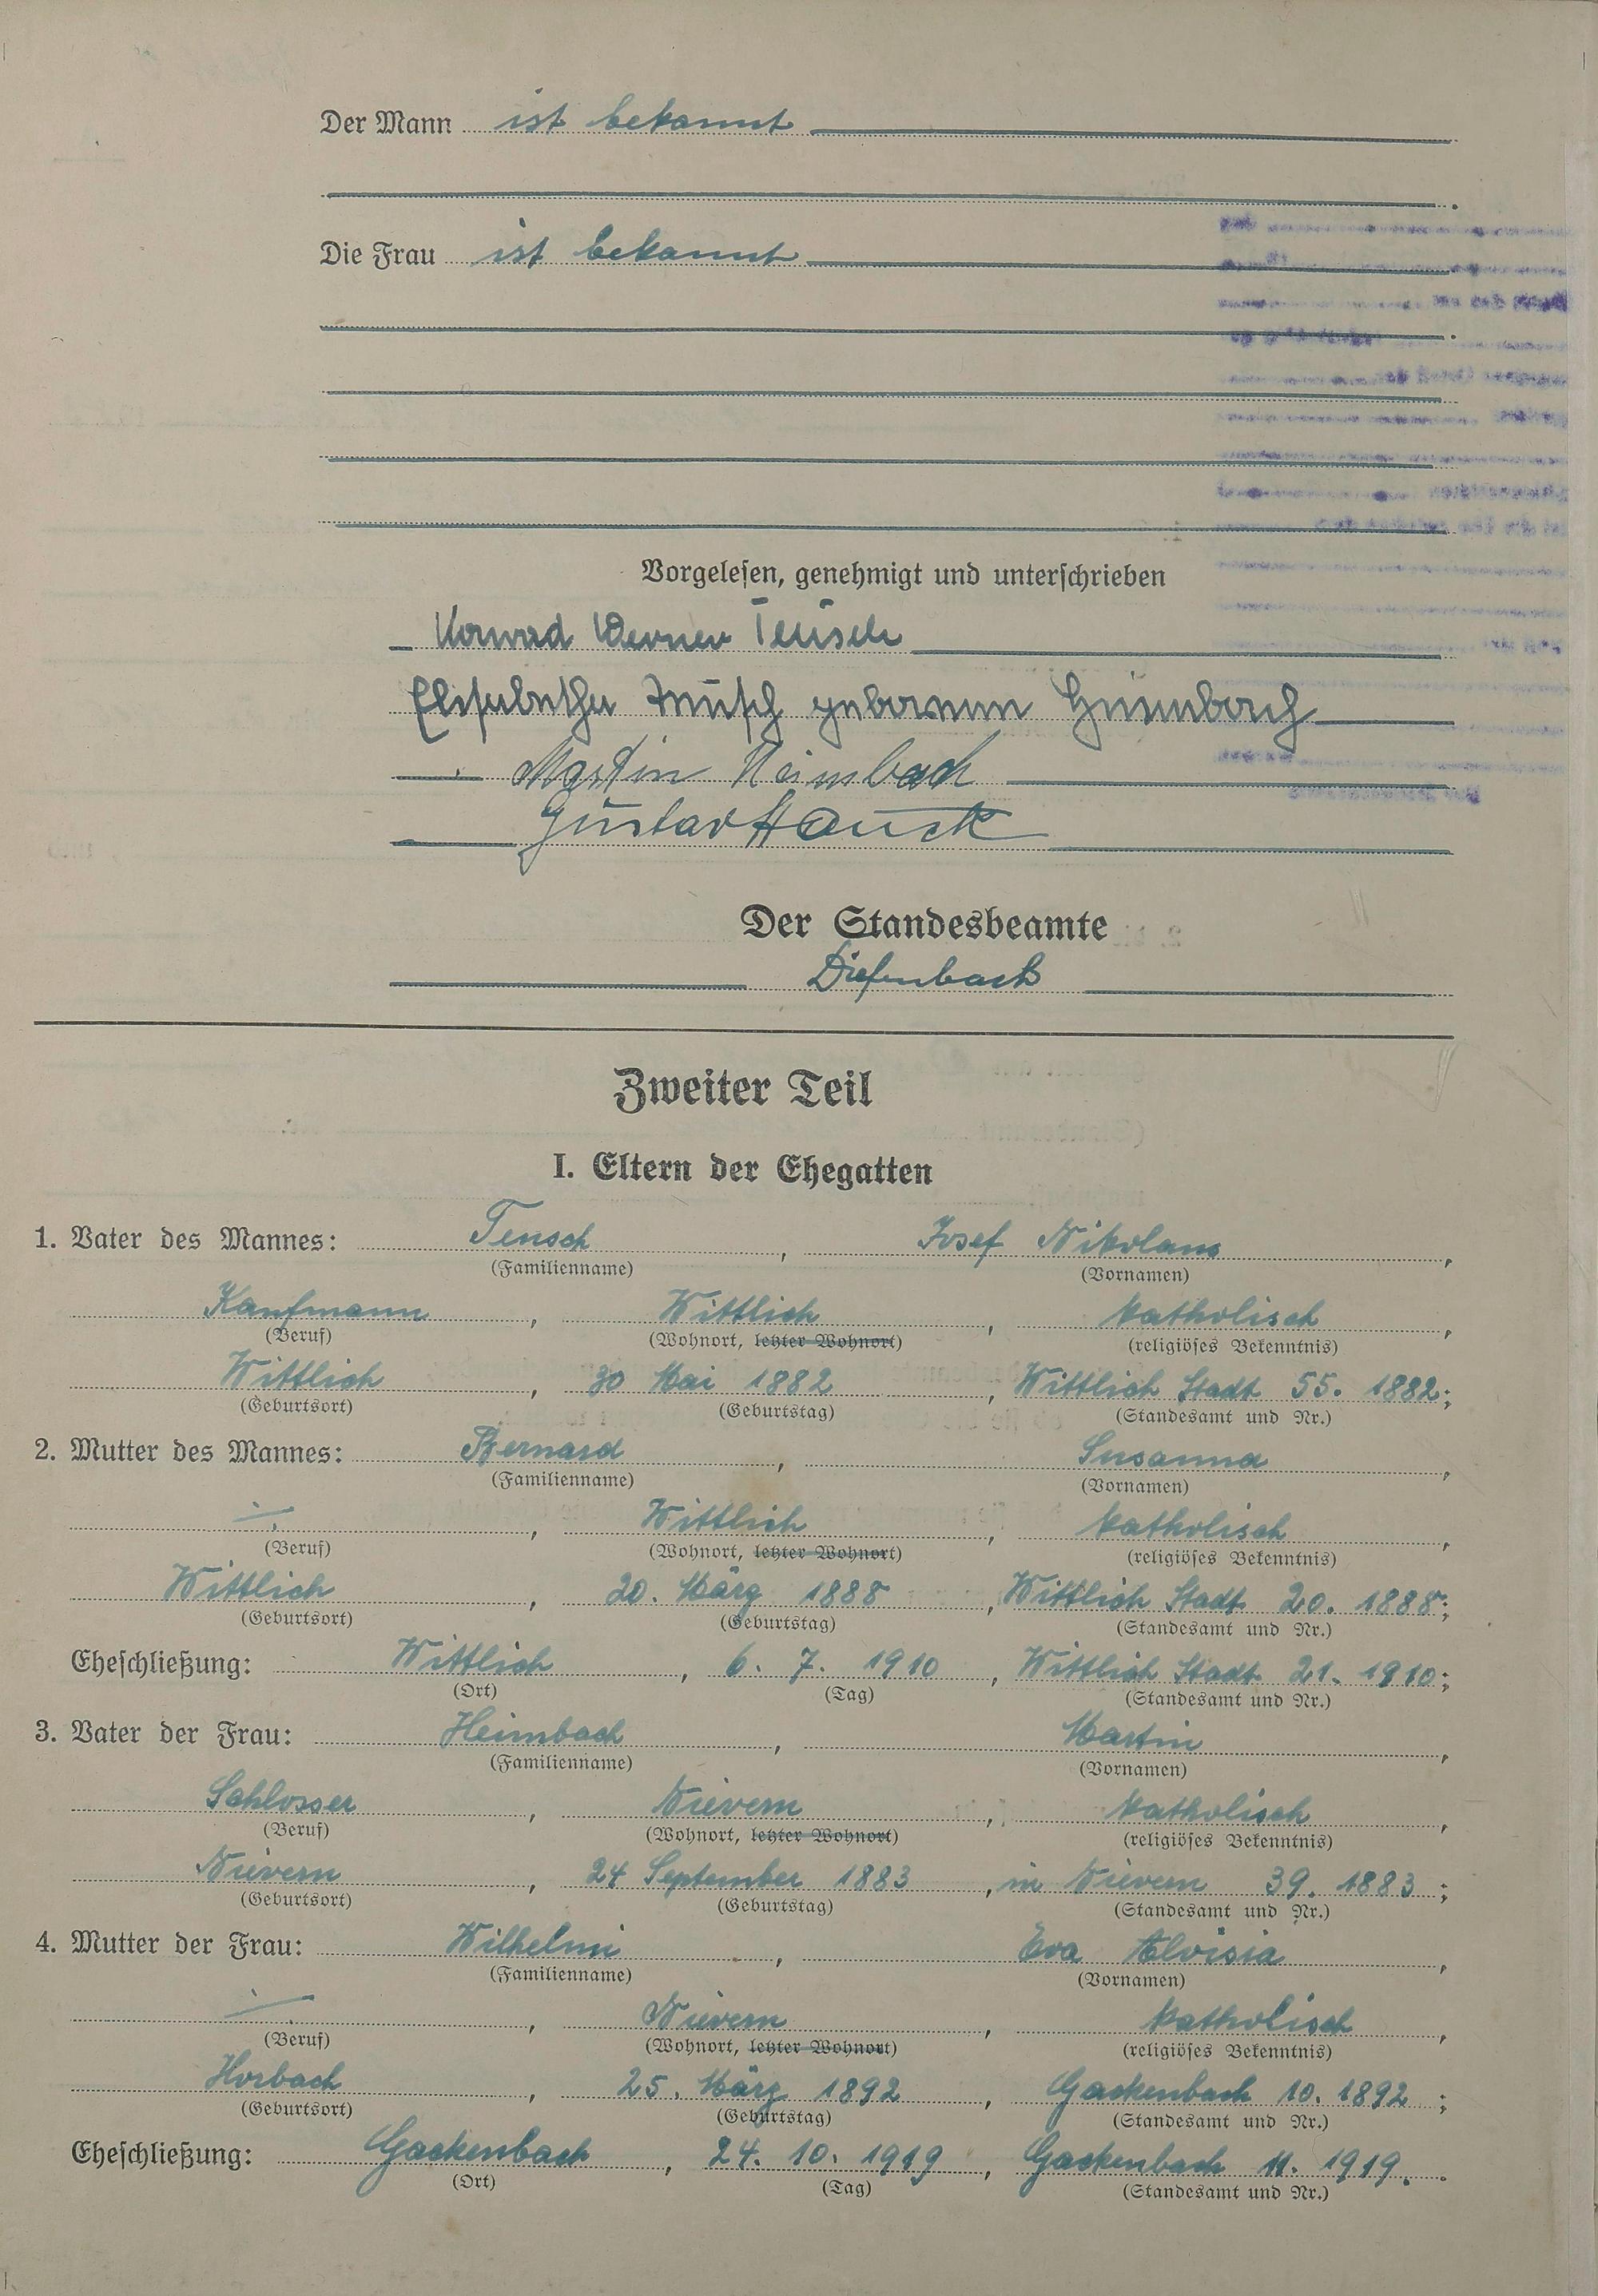 Der Mann ist bekannt
Die Frau ist bekannt
Vorgelesen, genehmigt und unterschrieben
Konrad Werner Teusch
Elisabetha Teusch geborenen Heimbach
Martin Heimbach
Gustav Hauck
Der Standesbeamte
Diefenbach
Zweiter Teil
I. Eltern der Ehegatten
1. Vater des Mannes: Teusch, Josef Nikolaus,
(Familienname) (Vornamen)
Kaufmann, Wittlich, katholisch,
(Beruf) (Wohnort, letzter Wohnort) (religiöses Bekenntnis)
Wittlich, 30 Mai 1882, Wittlich Stadt 55. 1882;
(Geburtsort) (Geburtstag) (Standesamt und Nr.)
2. Mutter des Mannes: Bernard, Susanna,
(Familienname) (Vornamen)
, Wittlich, katholisch,
(Beruf) (Wohnort, letzter Wohnort) (religiöses Bekenntnis)
Wittlich, 20. März 1888, Wittlich Stadt 20. 1888;
(Geburtsort) (Geburtstag) (Standesamt und Nr.)
Eheschließung: Wittlich, 6. 7. 1910, Wittlich Stadt 21. 1910;
(Ort) (Tag) (Standesamt und Nr.)
3. Vater der Frau: Heimbach, Martin,
(Familienname) (Vornamen)
Schlosser, Nievern, katholisch,
(Beruf) (Wohnort, letzter Wohnort) (religiöses Bekenntnis)
Nievern, 24 September 1883, in Nievern 39. 1883;
(Geburtsort) (Geburtstag) (Standesamt und Nr.)
4. Mutter der Frau: Wilhelmi, Eva Aloisia,
(Familienname) (Vornamen)
, Nievern, katholisch,
(Beruf) (Wohnort, letzter Wohnort) (religiöses Bekenntnis)
Horbach, 25. März 1892, Gackenbach 10. 1892;
(Geburtsort) (Geburtstag) (Standesamt und Nr.)
Eheschließung: Gackenbach, 24. 10. 1919, Gackenbach 11. 1919.
(Ort) (Tag) (Standesamt und Nr.)